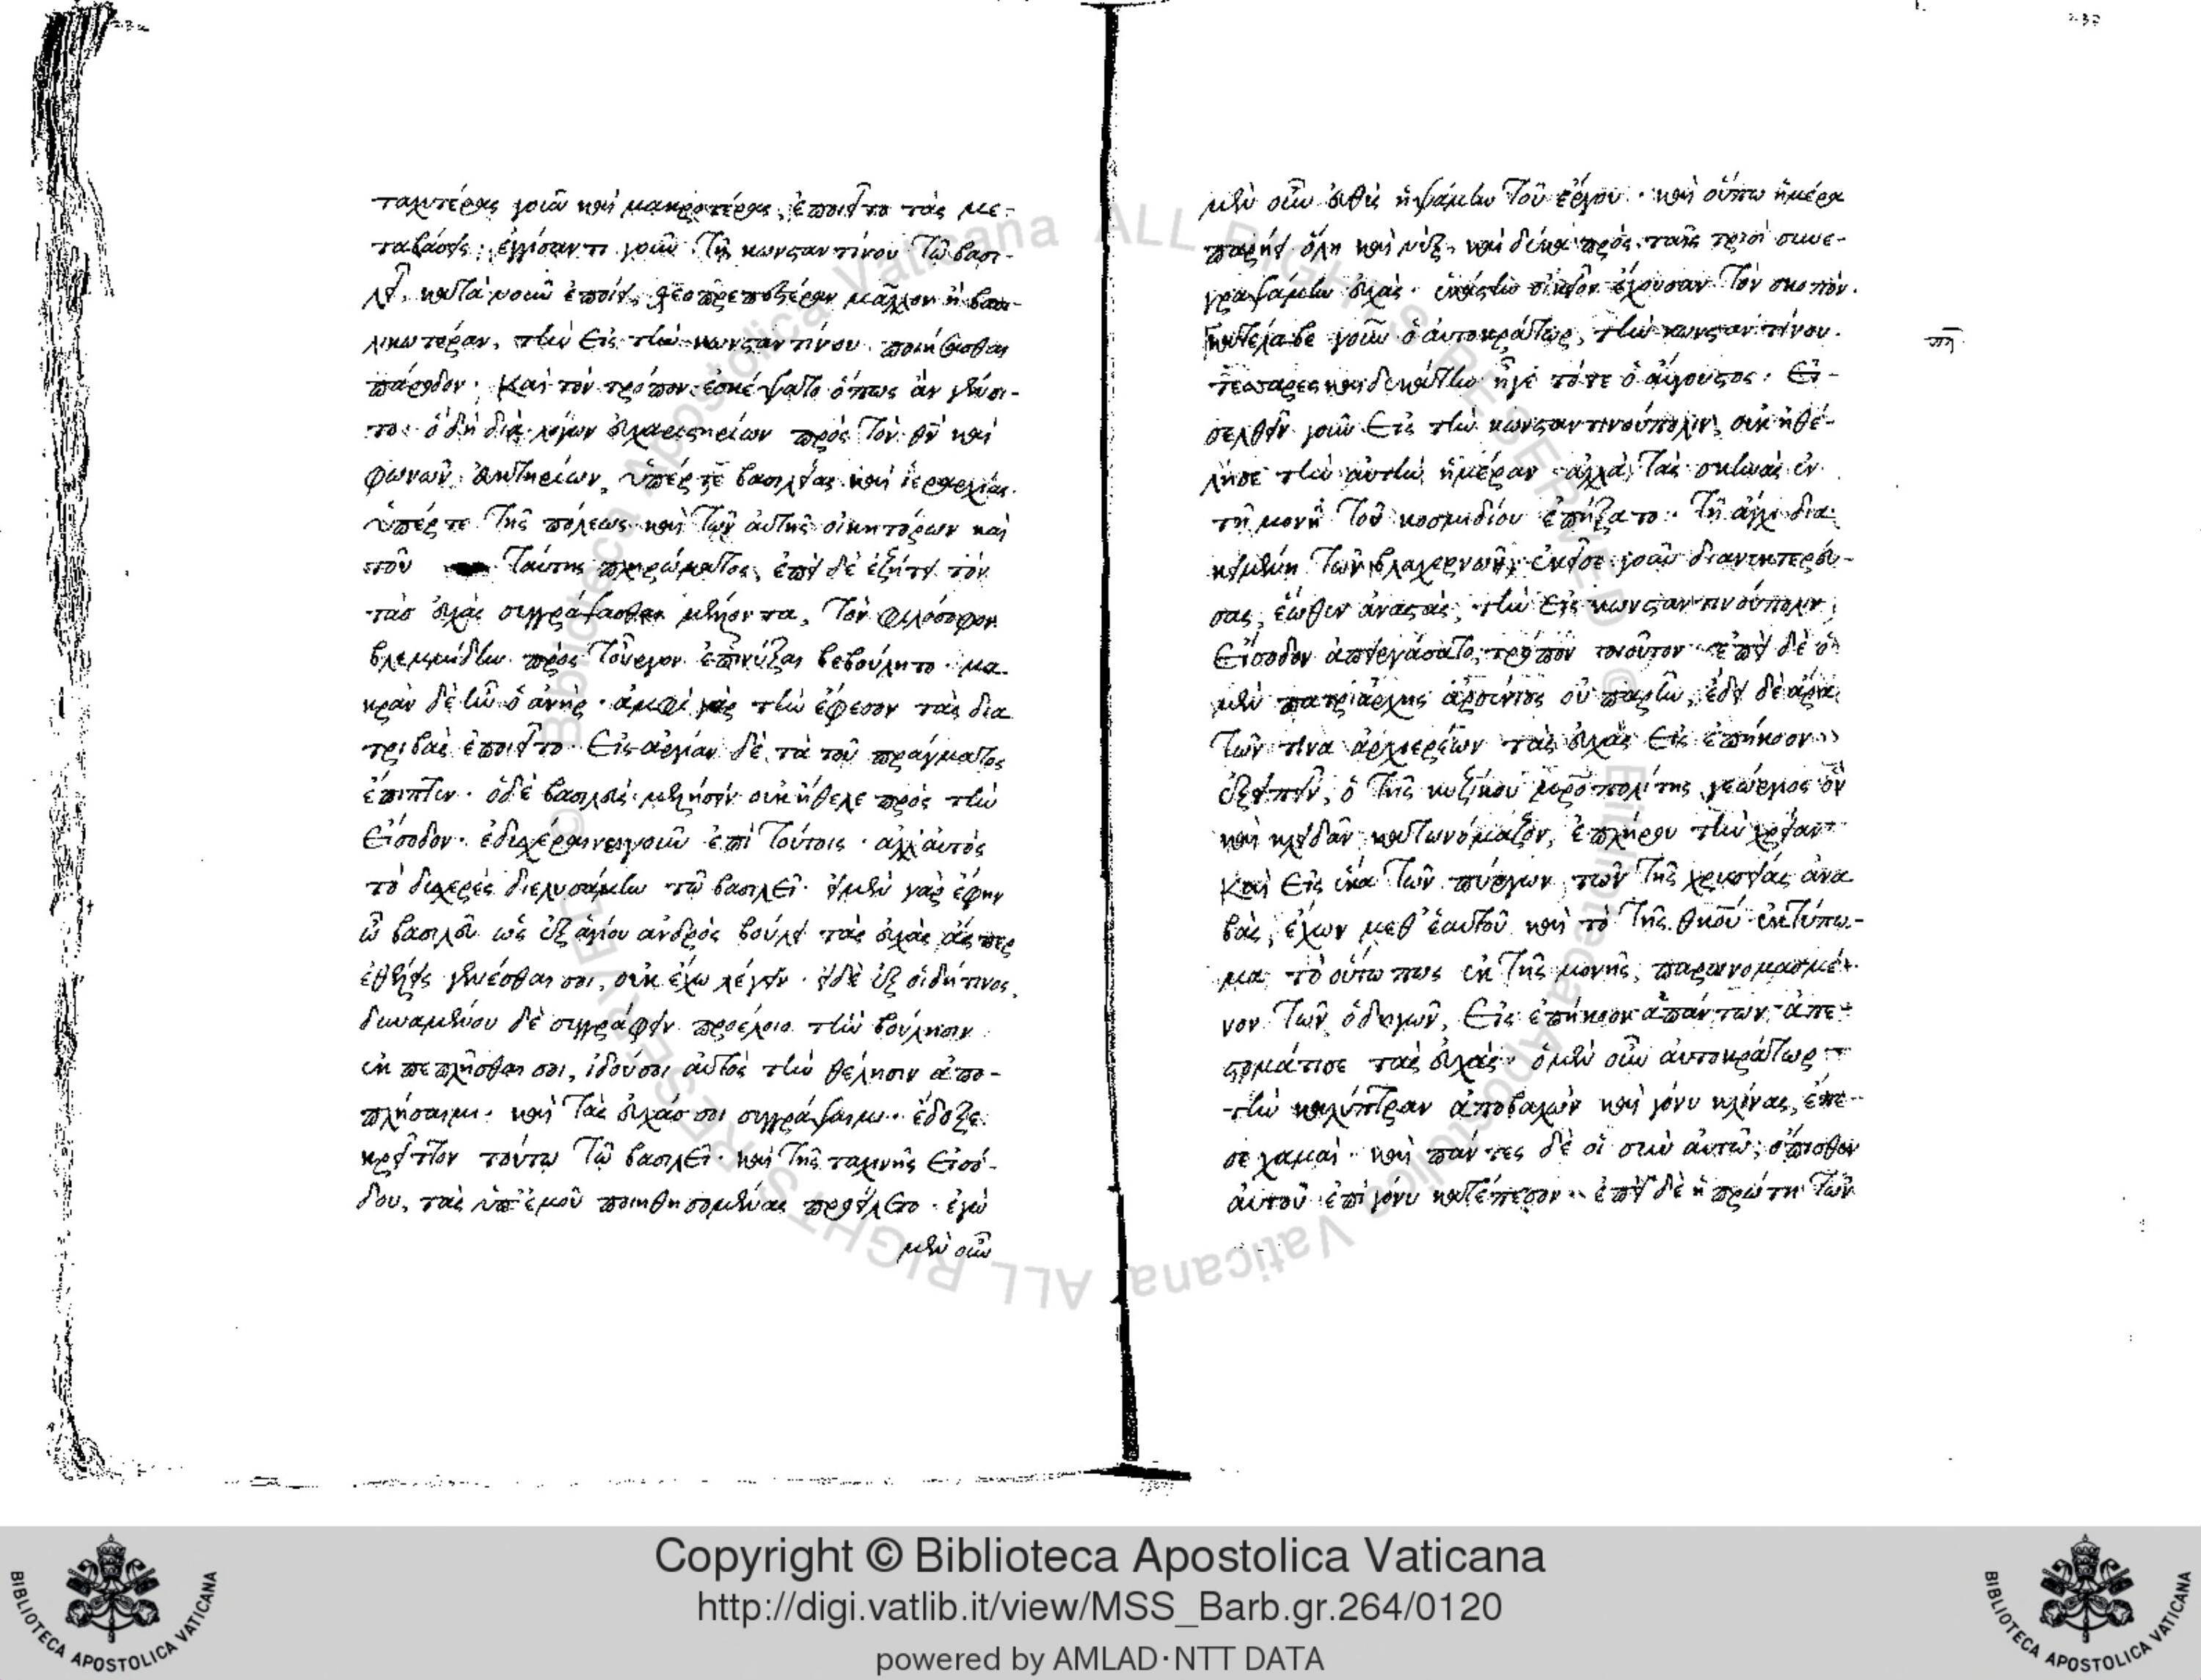 ταχυτέρας γοῦν καὶ μακροτέρας, ἐποιεῖτο τὰς με-
ταβάσεις· ἐγγίσαντι γοῦν τῇ κωνσταντίνου τῷ βασι-
λεῖ, κατὰ νοῦν ἐποίει, θεοπρεπεστέραν μᾶλλον ἢ βασι-
λικωτέραν, τὴν εἰς τὴν κωνσταντίνου ποιήσασθαι
πάροδον· καὶ τὸν τρόπον ἐσκέψατο ὅπως ἂν γένοι-
το· ὁ δὴ διὰ λόγων εὐχαριστηρίων πρὸς τὸν θν καὶ
φωνῶν ἐκτηρίων, ὑπέρ τε βασιλείας καὶ ἱεραρχίας.
ὑπέρ τε τῆς πόλεως καὶ τῶν αὐτῆς οἰκητόρων καὶ
τοῦ ταύτης πληρώματος, ἐπεὶ δὲ ἐζήτει τὸν
τὰσ εὐχὰς συγγράψασθαι μέλλοντα, τὸν φιλόσοφον
βλεμμύδην πρὸς τοὖργον ἐπινύξαι βεβούλητο· μα-
κρὰν δὲ ἦν ὁ ἀνὴρ· ἀμφὶ γὰρ τὴν ἔφεσον τὰς δια
τριβὰς ἐποιεῖτο· εἰς ἀργίαν δὲ τὰ τοῦ πράγματος
ἔπιπτεν· ὁ δὲ βασιλεὺς μέλλησιν οὐκ ἤθελε πρὸς τὴν
εἴσοδον· ἐδυσχέραινε γοῦν ἐπὶ τούτοις· ἀλλ' αὐτὸς
τὸ δυσχερὲς διελυσάμην τῷ βασιλεῖ· εἰ μὲν γὰρ ἔφην
ὦ βασιλεῦ ὡς ἐξ ἁγίου ἀνδρὸς βούλει τὰς εὐχὰς ἅσπερ
ἐθέλεις γενέσθαι σοι, οὐκ ἔχω λέγειν· εἰ δὲ ἐξ οἱδήτινος,
δυναμένου δὲ συγγράφειν προέλοιο τὴν βούλησιν
ἐκπεπλῆσθαι σοι, ἰδού σοι αὐτὸς τὴν θέλησιν ἀπο-
πλήσαιμι· καὶ τὰς εὐχάς σοι συγγράψαιμι· ἔδοξε
κρεῖττον τούτω τῷ βασιλεῖ· καὶ τῆς ταχινῆς εἰσό-
δου, τὰς ὑπ' ἐμοῦ ποιηθησομένας προείλετο· ἐγὼ
μὲν οὖν
μὲν οὖν εὐθὺς ἡψάμην τοῦ ἔργου· καὶ οὔπω ἡμέρα
παρῆλθεν ὅλη καὶ νύξ, καὶ δέκα πρὸς ταῖς τρισὶ συνε-
γραψάμην εὐχὰς· ἑκάστην οἰκεῖον ἔχουσαν τὸν σκοπόν.
κατέλαβε γοῦν ὁ αὐτοκράτωρ, τὴν κωνσταντίνου.
τεσσαρεσκαιδεκάτην ἦγε τότε ὁ αὔγουστος· εἰ-
σελθεῖν γοῦν εἰς τὴν κωνσταντινούπολιν, οὐκ ἠθέ-
λησε τὴν αὐτὴν ἡμέραν ἀλλὰ τὰς σκηνὰς ἐν
τῇ μονῇ τοῦ κοσμιδίου ἐπήξατο· τῇ ἄγχι δια
κειμένῃ τῶν βλαχερνῶν, ἐκεῖσε γοῦν διανυκτερεύ-
σας, ἕωθεν ἀναστὰς, τὴν εἰς κωνσταντινούπολιν
εἴσοδον ἀπειργάσατο, τρόπον τοιοῦτον· ἐπεὶ δὲ ὁ
μὲν πατριάρχης ἀρσένιος οὐ παρῆν, ἔδει δὲ ἄρα
τῶν τινα ἀρχιερέων τὰς εὐχὰς εἰς ἐπήκοον
ἐξειπεῖν, ὁ τῆς κυζίκου μροπολίτης γεώργιος ὃν
καὶ κλειδᾶν κατωνόμαζον, ἐπλήρου τὴν χρείαν·
καὶ εἰς ἕνα τῶν πύργων τῶν τῆς χρυσείας ἀνα
βὰς, ἔχων μεθ' ἑαυτοῦ καὶ τὸ τῆς θκου ἐκτύπω-
μα τὸ οὕτω πως ἐκ τῆς μονῆς, παρωνομασμέ-
νον τῶν ὁδηγῶν, εἰς ἐπήκοον ἁπάντων ἀπε-
στομάτισε τὰς εὐχὰς· ὁ μὲν οὖν αὐτοκράτωρ
τὴν καλύπτραν ἀποβαλὼν καὶ γόνυ κλίνας, ἔπε-
σε χαμαὶ· καὶ πάντες δὲ οἱ σὺν αὐτῷ, ὄπισθεν
αὐτοῦ ἐπὶ γόνυ κατέπεσον· ἐπεὶ δὲ ἡ πρώτη τῶν
Copyright © Biblioteca Apostolica Vaticana
http://digi.vatlib.it/view/MSS_Barb.gr.264/0120
powered by AMLAD·NTT DATA
BIBLIOTECA APOSTOLICA VATICANA
BIBLIOTECA APOSTOLICA VATICANA